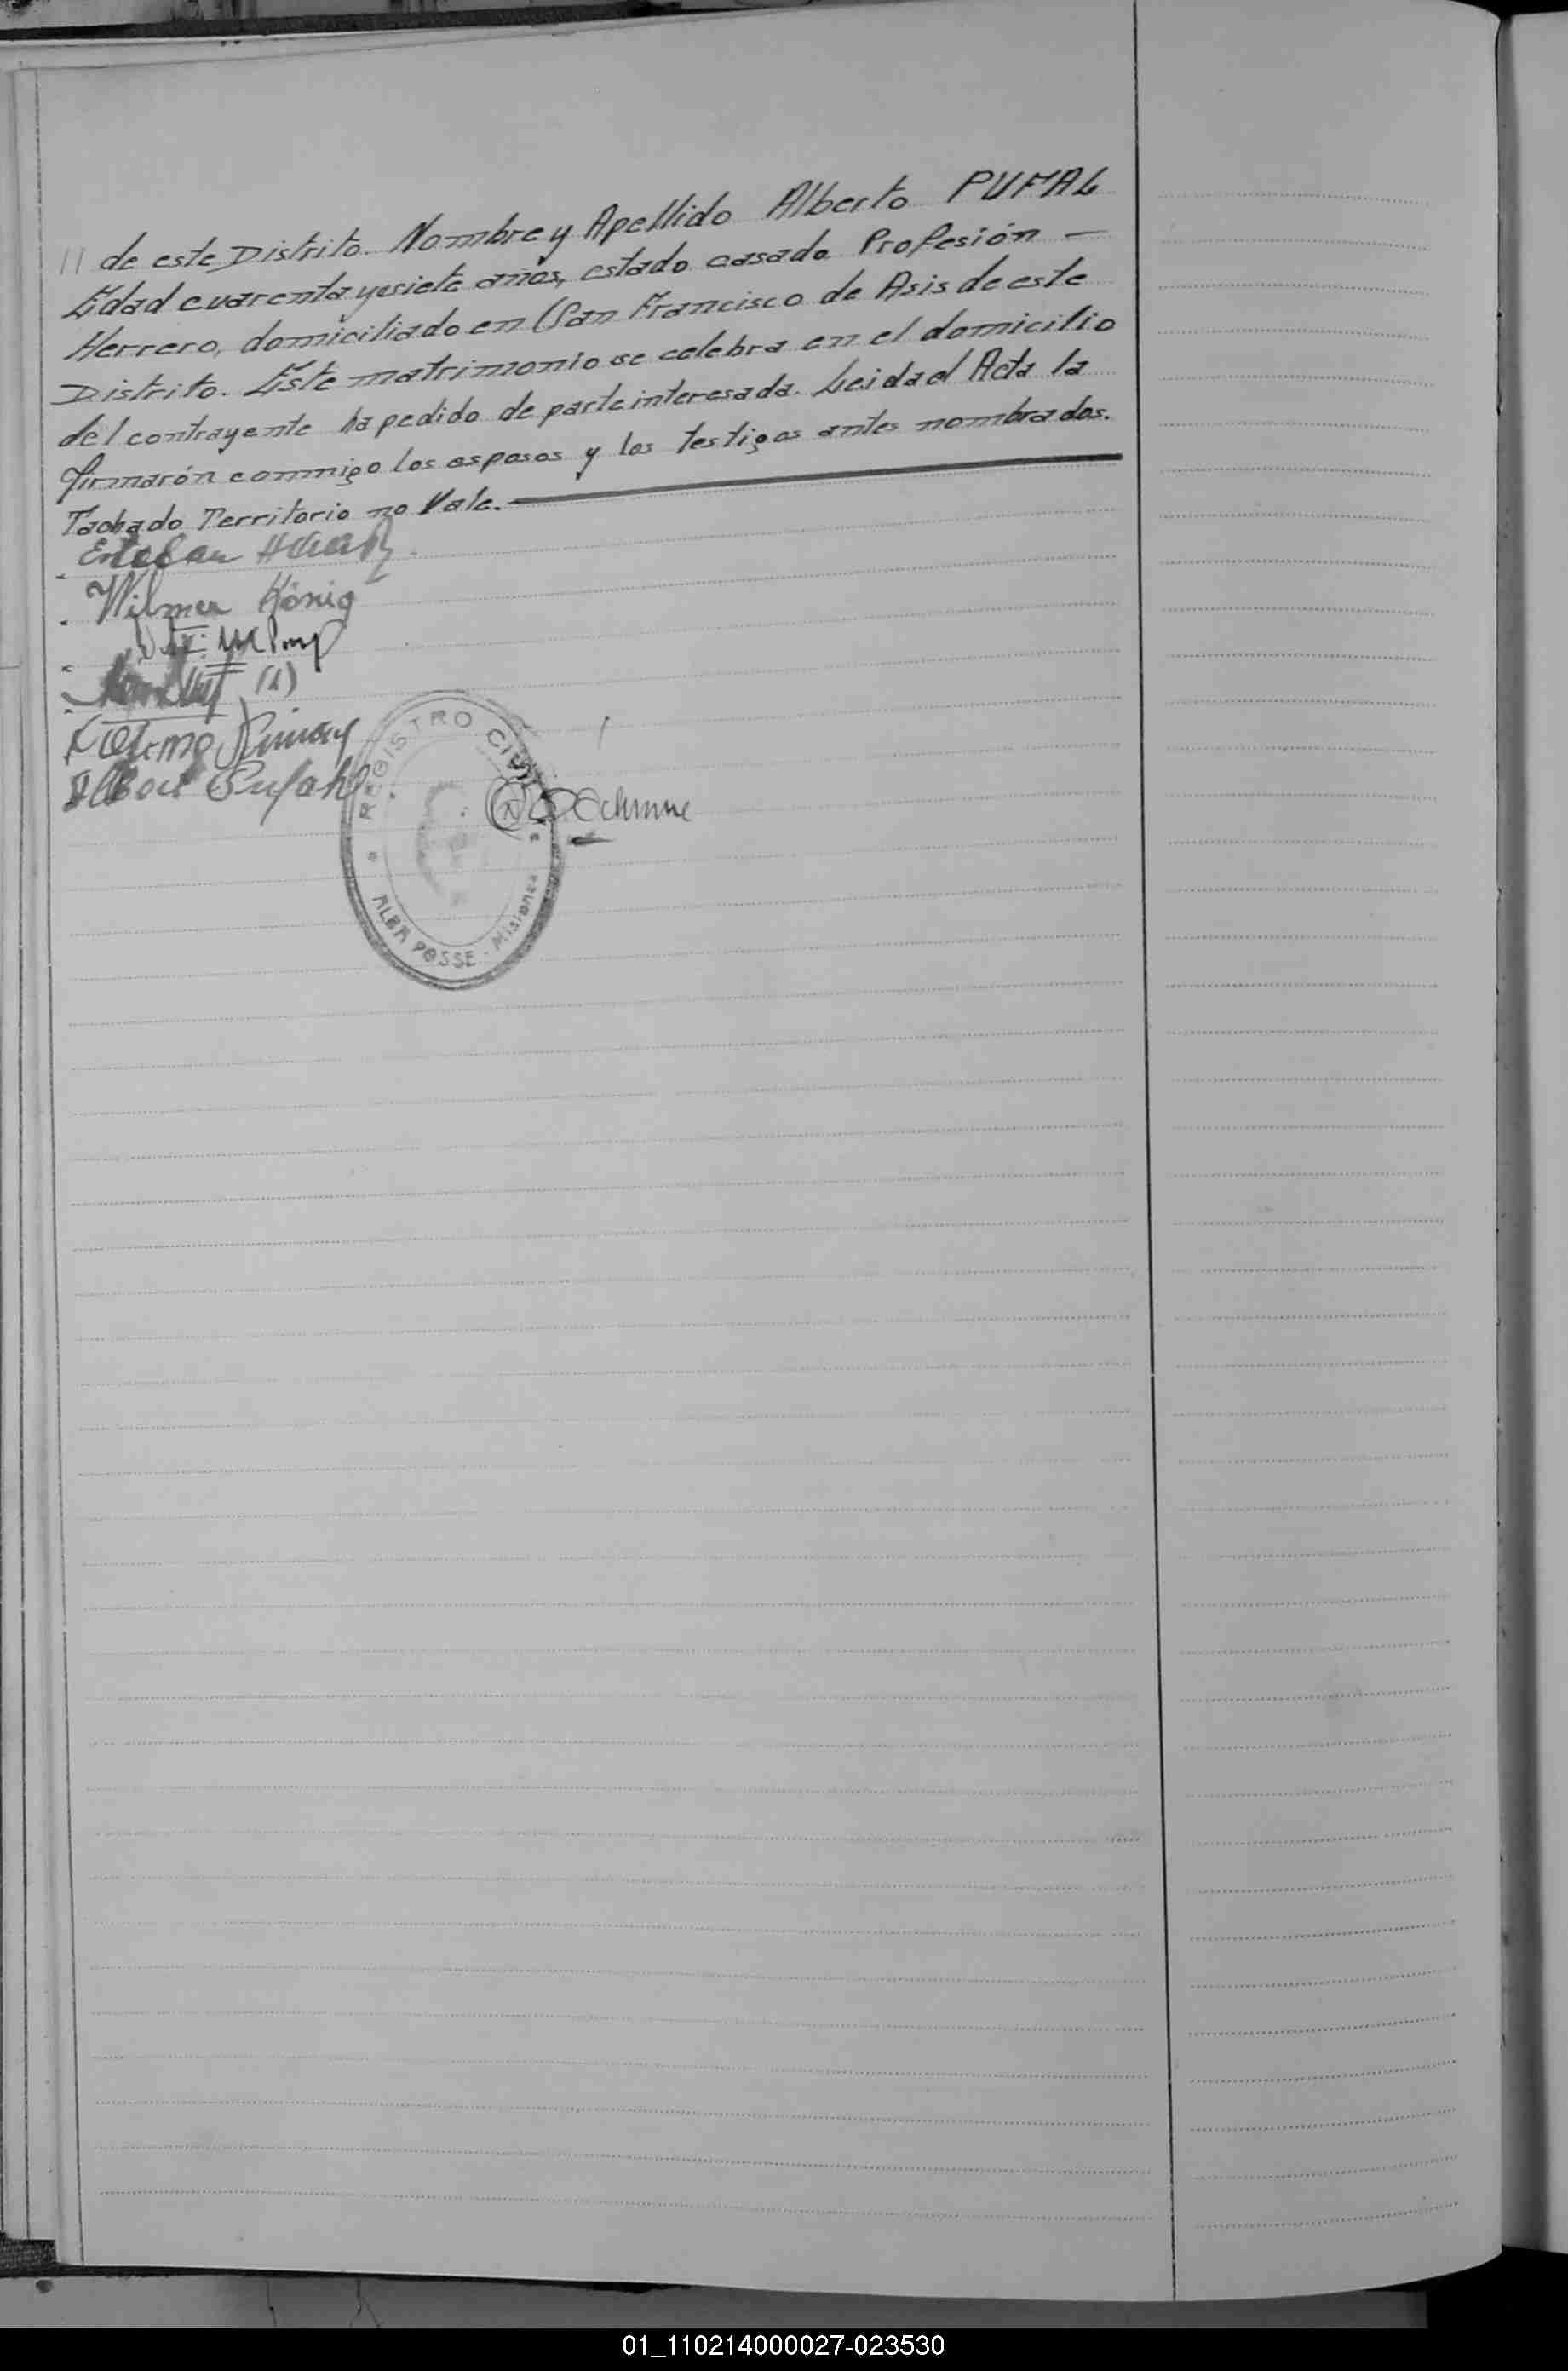 // de este Distrito. Nombre y Apellido Alberto PUFAL
Edad cuarenta y siete años, estado casado Profesión —
Herrero, domiciliado en San Francisco de Asis de este
Distrito. Este matrimonio se celebra en el domicilio
del contrayente ha pedido de parte interesada. Leida el Acta la
firmarón conmigo los esposos y los testigos antes nombrados.
Tachado Territorio no Vale.
Esteban
Wilmea König
(h)
Albert Pufahl
REGISTRO CIVIL
ALBA POSSE - Misiones
01_110214000027-023530